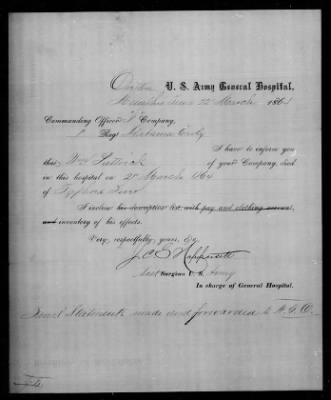 U. S. Army General Hospital,
Memphis Tenn 22 March 1864
Commanding Officer F Company,
1 Reg. Alabama Cavly
I have to inform you
that Wm
of your Company, died
in this hospital on 21 March 1864
of Typhoid Fever
I inclose his descriptive list, with pay and clothing account,
and inventory of his effects.
Very, respectfully, yours, &c,
Surgeon U. S. Army
In charge of General Hospital.
Final Statements made and forwarded to A. G. O.